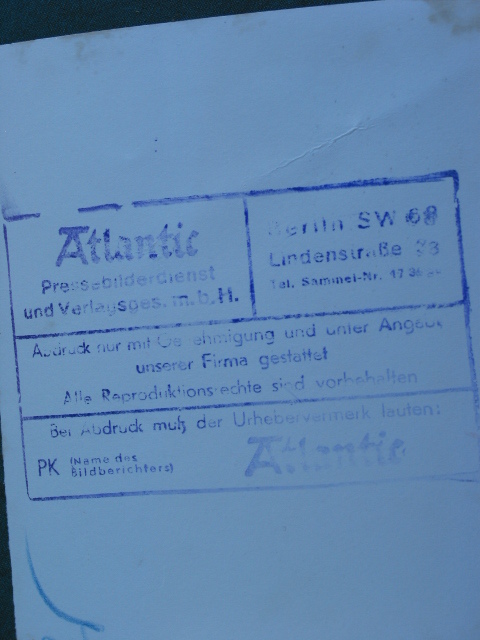 Atlantic
Pressebilderdienst
und Verlagsges. m.b.H.
Berlin SW 68
Lindenstraße
Tel. Sammel-Nr. 17
Abdruck nur mit Genehmigung und unter Angabe
unserer Firma gestattet
Alle Reproduktionsrechte sind vorbehalten
Bei Abdruck muß der Urhebervermerk lauten:
PK (Name des
Bildberichters)
Atlantic